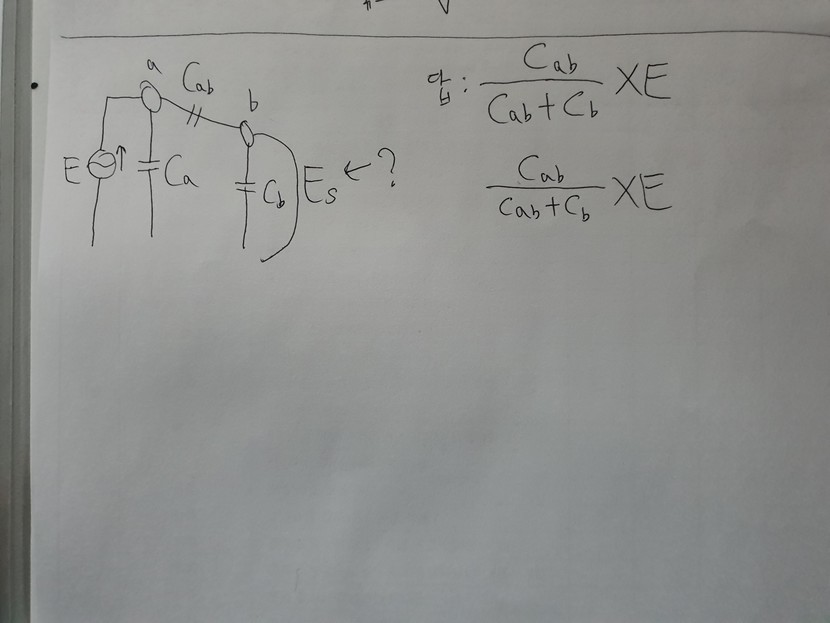 a
Cab
b
E
Ca
Cb
Es ← ?
답: Cab / (Cab + Cb) × E
Cab / (Cab + Cb) × E